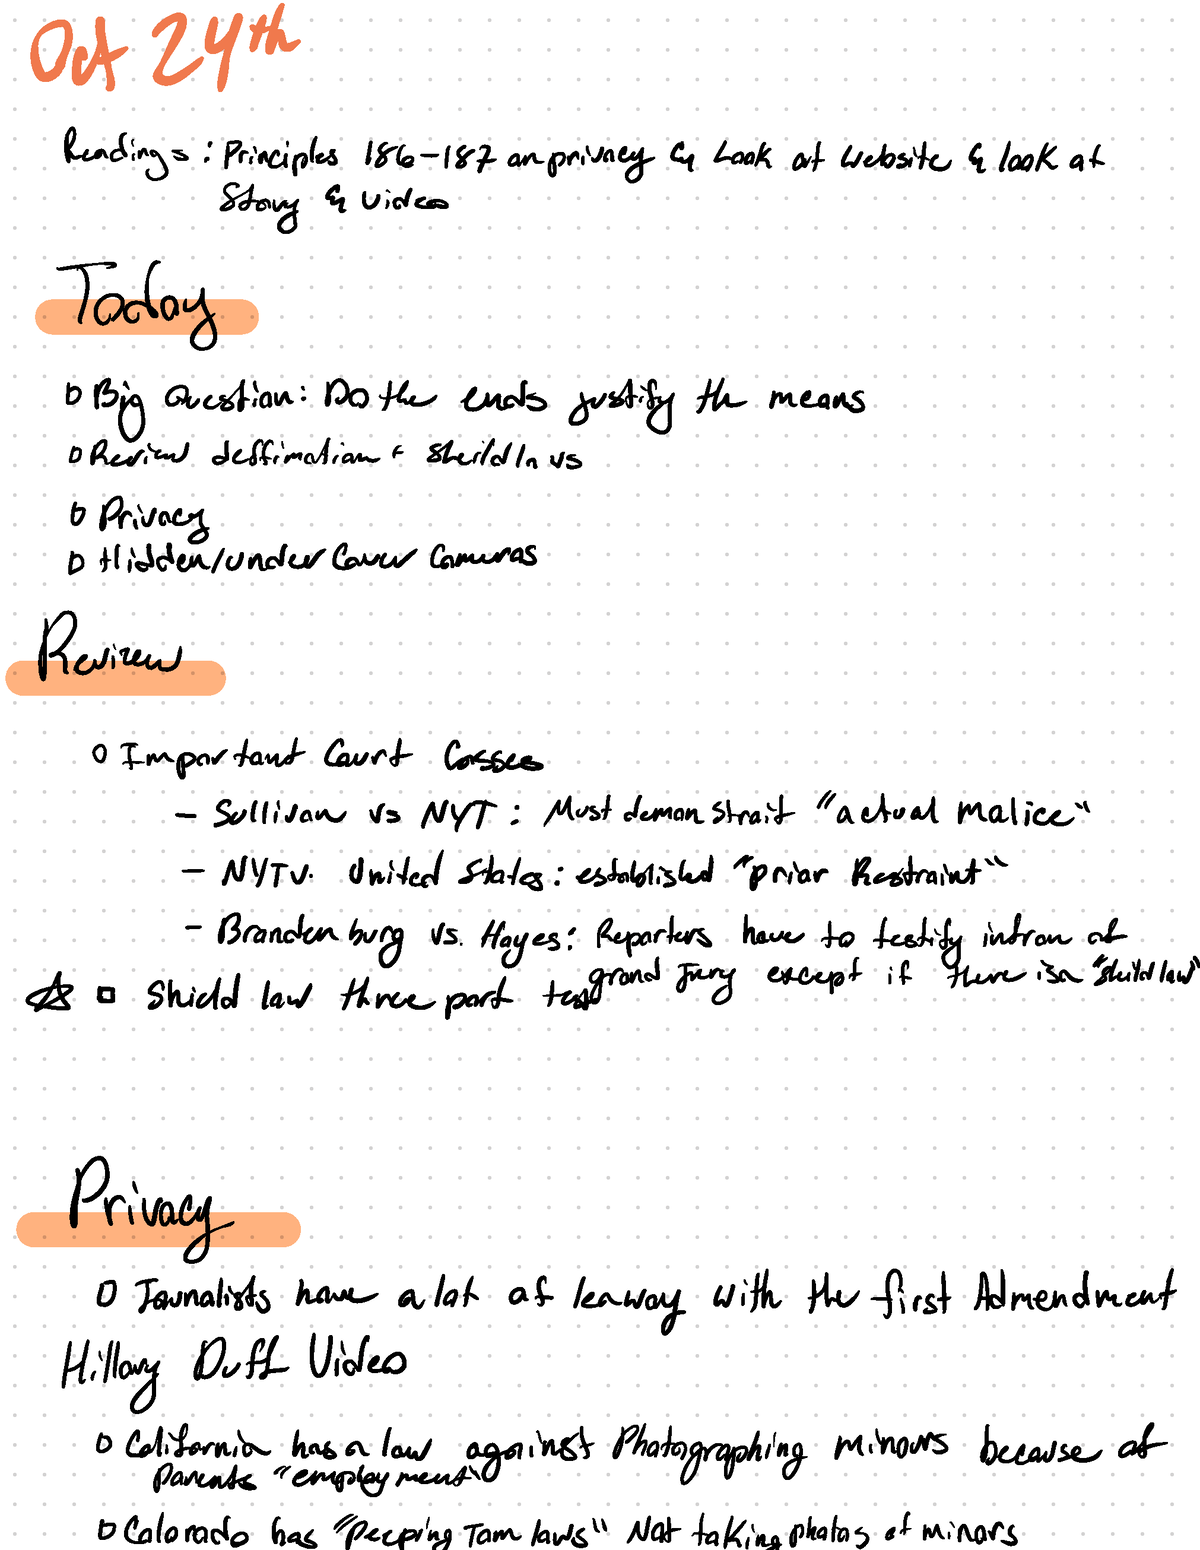 Oct 24th
Readings: Principles 186-187 on privacy & Look at website & look at
Story & video
Today
Big Question: Do the ends justify the means
Review deffimation & Sheild laws
Privacy
Hidden/undercover Cameras
Review
Important Court Casses
- Sullivan vs NYT: Must demonstrait "actual malice"
- NYT v. United States: established "prior Restraint"
- Brandenburg vs. Hayes: Reporters have to testify infron of
grand Jury except if there is a "sheild law"
☆ Shield law three part test
Privacy
Journalists have a lot of leaway with the first Admendment
Hillary Duff Video
California has a law against Photographing minours because of
Parents "employment"
Colorado has "Peeping Tom laws" Not taking photos of minors